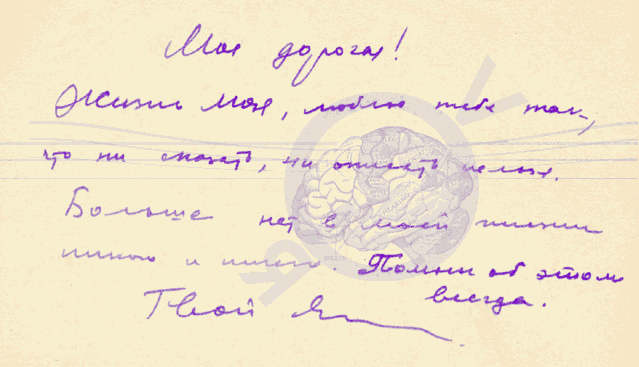 Моя дорогая!
Жизнь моя, люблю тебя так,
что ни сказать, ни описать нельзя.
Больше нет в моей жизни
никого и ничего. Помни об этом
всегда.
Твой Я